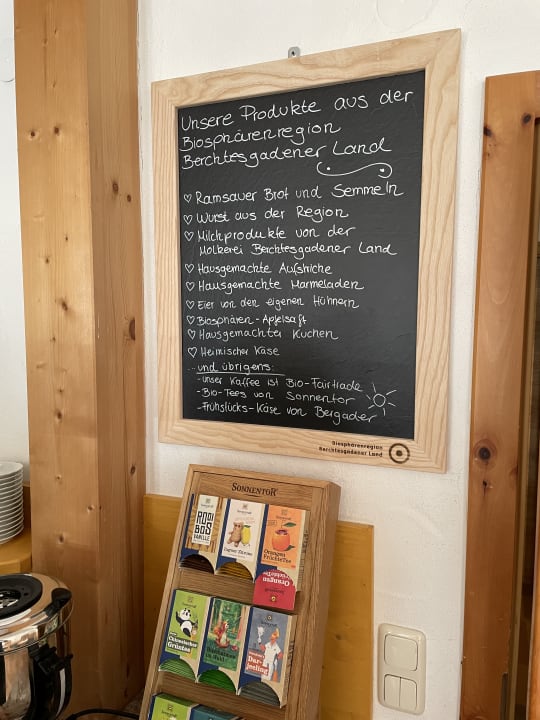 Unsere Produkte aus der
Biosphärenregion
Berchtesgadener Land
♡ Ramsauer Brot und Semmeln
♡ Wurst aus der Region
♡ Milchprodukte von der
Molkerei Berchtesgadener Land
♡ Hausgemachte Aufstriche
♡ Hausgemachte Marmeladen
♡ Eier von den eigenen Hühnern
♡ Biosphären-Apfelsaft
♡ Hausgemachter Kuchen
♡ Heimischer Käse
...und übrigens:
- unser Kaffee ist Bio-Fairtrade
- Bio-Tees von Sonnentor
- Frühstücks-Käse von Bergader
Biosphärenregion
Berchtesgadener Land
SONNENTOR
ROOI
BOS
VANILLE
Ingwer Zitrone
Orangen
FrüchteTee
Orangen
FrüchteTee
Chinesischer
Grüntee
Dar-
jeeling